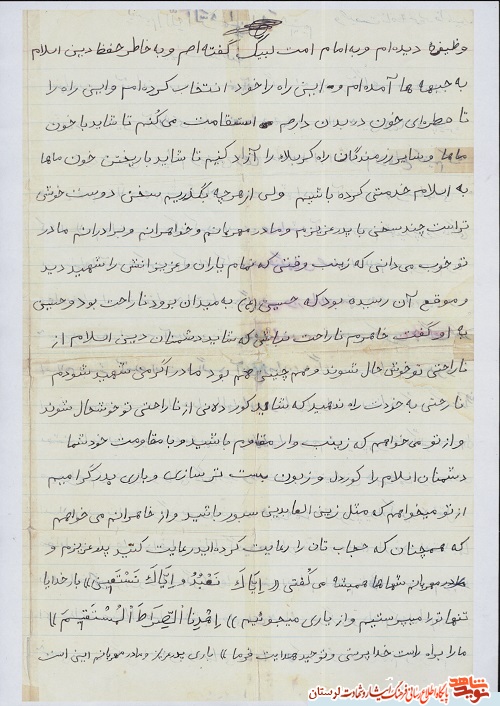 وظیفه دیده ام و به امام امت لبیک گفته ام و به خاطر حفظ دین اسلام
به جبهه ها آمده ام و این راه را خود انتخاب کرده ام و این راه را
تا قطره ای خون در بدن دارم استقامت می کنم تا شاید با خون
ماها و سایر رزمندگان راه کربلا را آزاد کنیم تا شاید با ریختن خون ماها
به اسلام خدمتی کرده باشیم ولی از هرچه بگذریم سخن دوست خوش
تر است چند سخن با پدر عزیزم و مادر مهربانم و خواهران و برادران مادر
تو خوب می دانی که زینب وقتی که تمام یاران و عزیزانش را شهید دید
و موقع آن رسیده بود که حسین (ع) به میدان برود ناراحت بود و حسین
به او گفت خاهرم ناراحت نباش که شاید دشمنان دین اسلام از
ناراحتی تو خوش حال شوند و هم چنین هم بود مادر اگر من شهید شدم
نارحتی به خودت راه ندهید که شاید کوردلان از ناراحتی تو خوشحال شوند
و از تو می خواهم که زینب وار مقاوم باشید و با مقاومت خود شما
دشمنان اسلام را کوردل و زبون پست تر سازی و باری پدر گرامیم
از تو میخواهم که مثل زین العابدین سبور باشید و از خاهرانم می خواهم
که همچنان که حجاب تان را رعایت کرده اید رعایت کنید پدر عزیزم و
مادر مهربانم شماها همیشه می گفتی «اِیّاکَ نَعبُدُ و اِیّاکَ نَستَعین» بار خدایا
تنها تو را میپرستیم و از یاری میجوئیم» «اِهْدِنا الصِّراطَ الْمُسْتَقیمَ»
ما را براه راست خدا پرستی و توحید هدایت فرما» باری پدر و مادر مهربانم این است
نوید شاهد
پایگاه اطلاع رسانی فرهنگ ایثار و شهادت لرستان